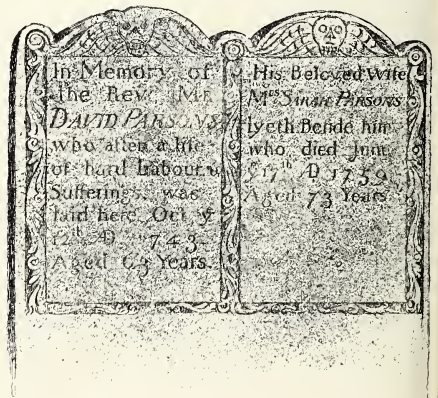 In Memory of
The Revd Mr
DAVID PARSONS
who after a life
of hard Labour &
Sufferings was
laid here Oct ye
12th AD 1743
Aged 63 Years.
His Beloved Wife
Mrs SARAH PARSONS
lyeth Beside him
who died June
ye 17th AD 1759
Aged 73 Years